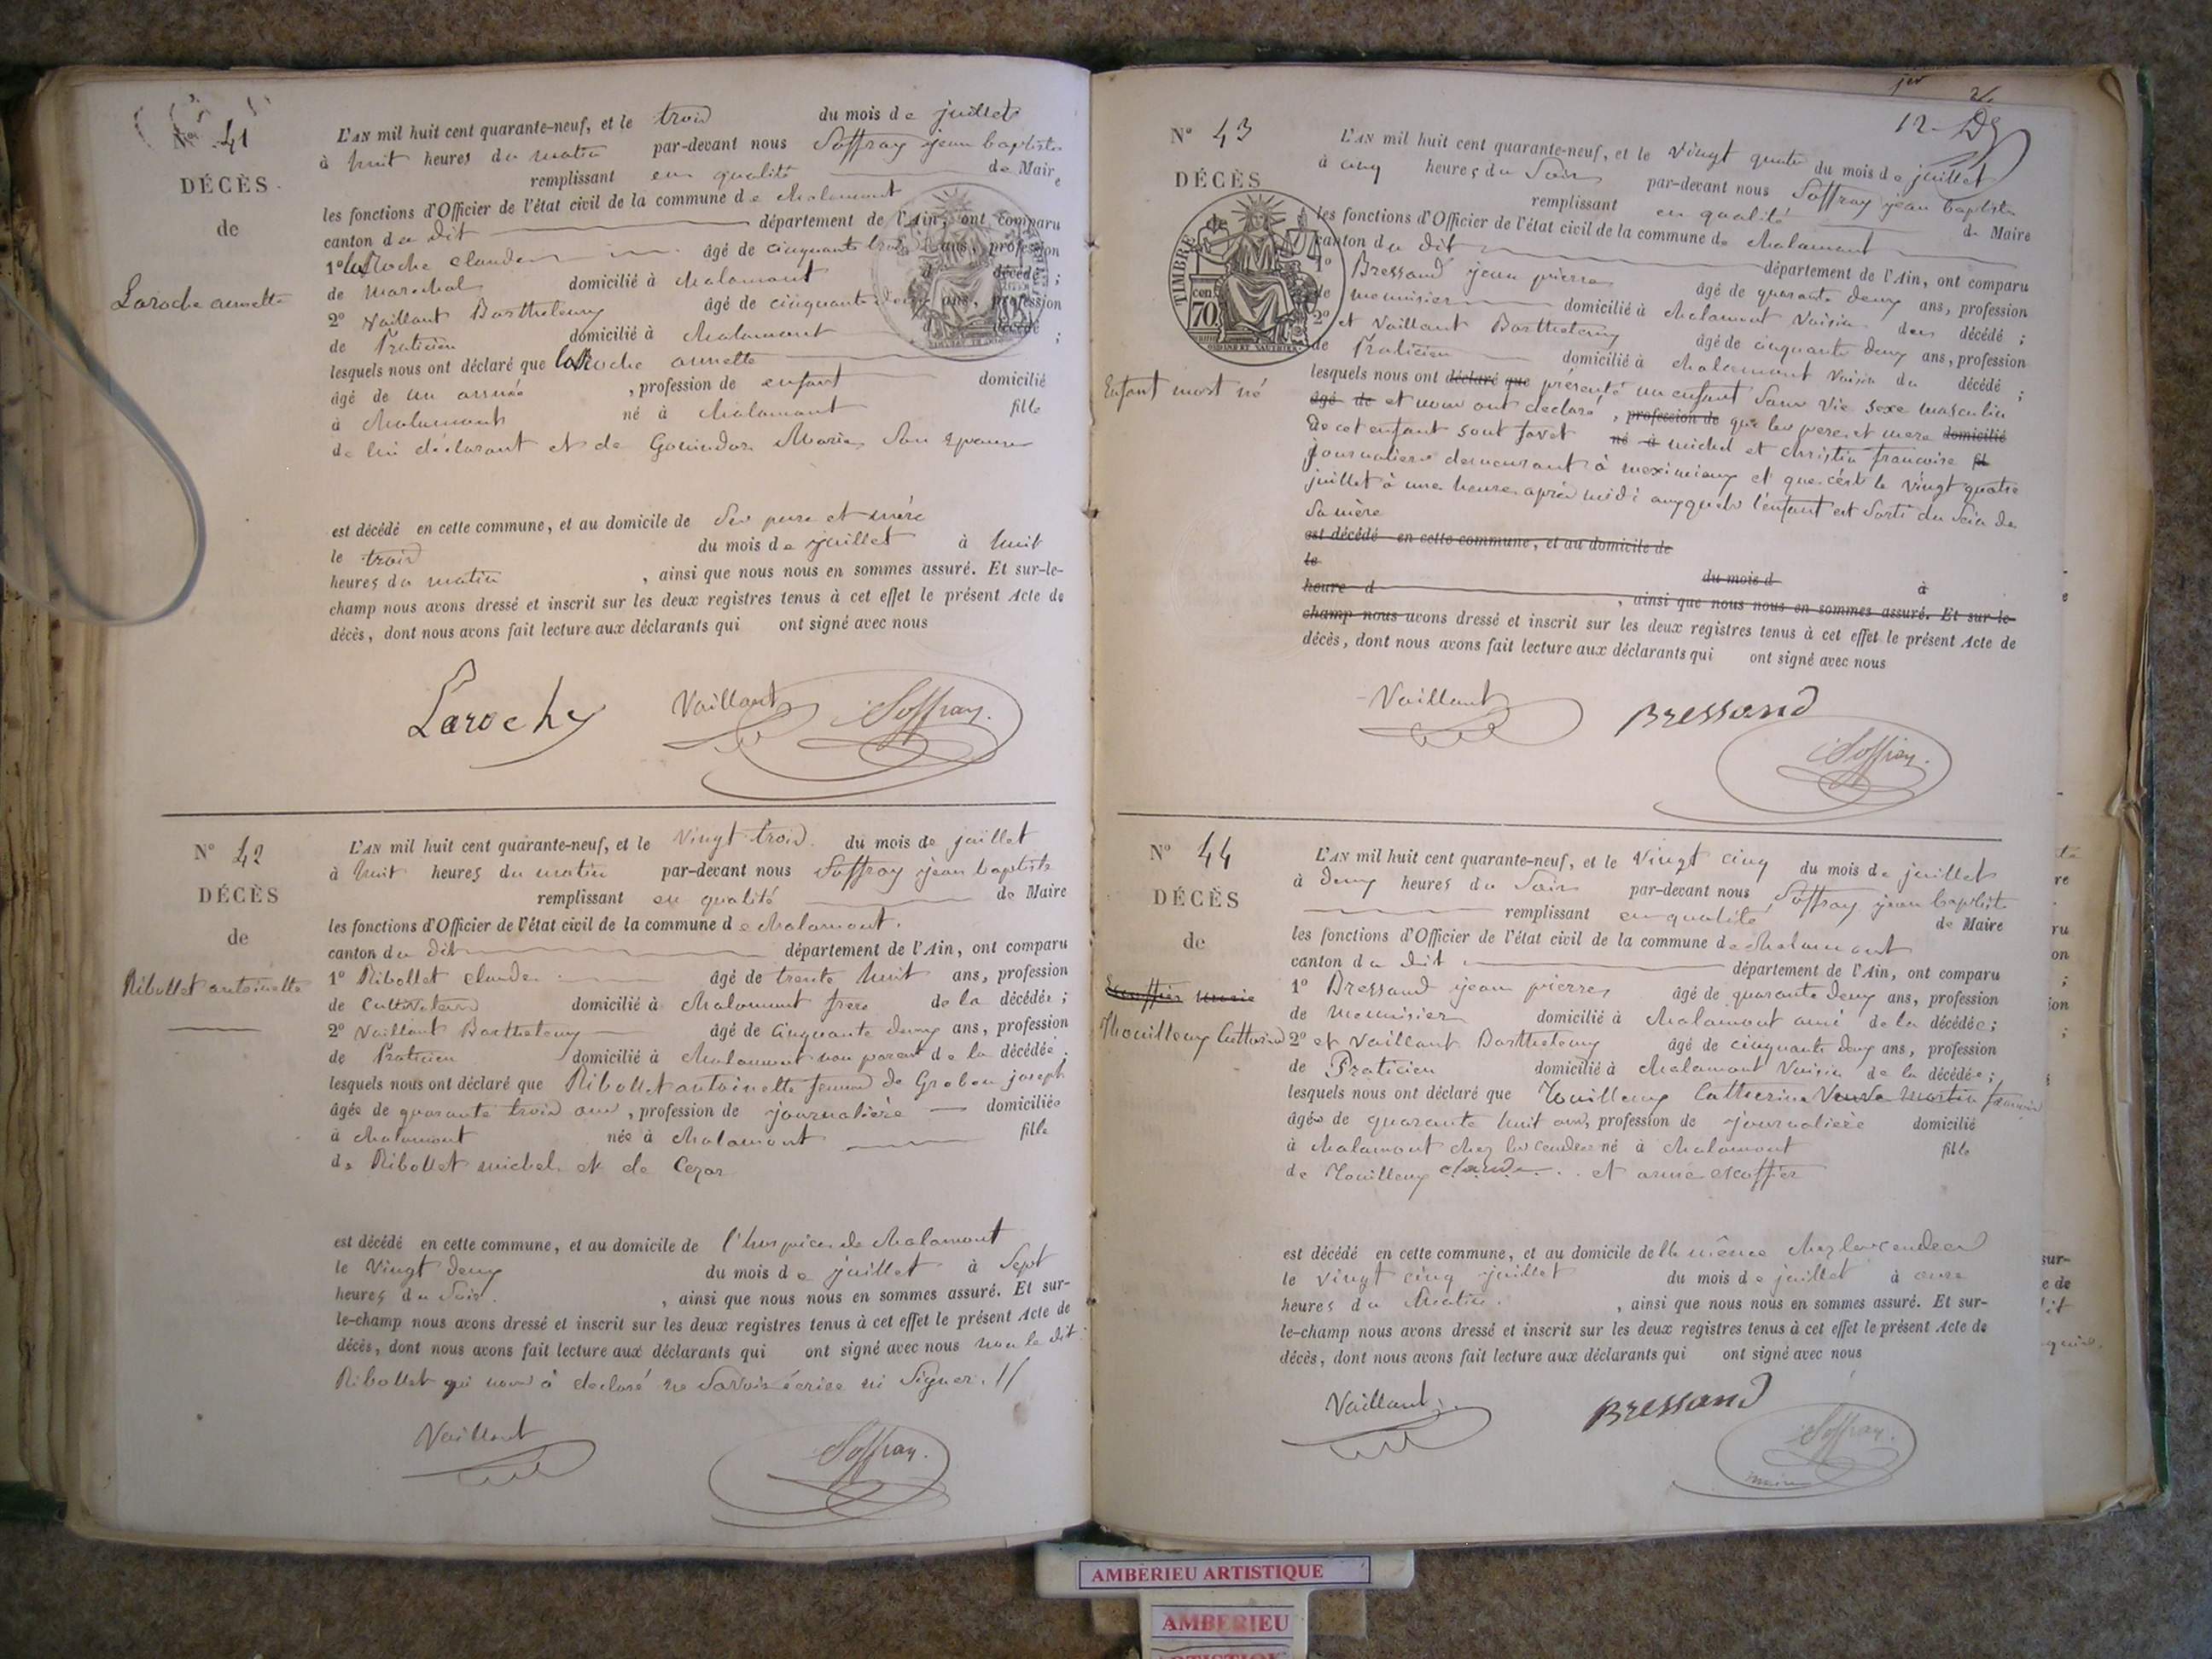 N° 41
DÉCÈS
de
Laroche annette
L'AN mil huit cent quarante-neuf, et le trois du mois de juillet
à huit heures du matin par-devant nous Soffray jean baptiste
remplissant en qualité de Maire
les fonctions d'Officier de l'état civil de la commune de chalamont
canton du dit département de l'Ain, ont comparu
1° Laroche claude âgé de cinquante trois ans, profession
de marechal domicilié à chalamont d décédé ;
2° Vaillant Barthelemy âgé de cinquante deux ans, profession
de Praticien domicilié à chalamont d décédé ;
lesquels nous ont déclaré que LaRoche annette
âgé de un année , profession de enfant domicilié
à chalamont né à chalamont fille
de lui déclarant et de Marie Son epouse
est décédé en cette commune, et au domicile de Ses pere et mère
le trois du mois de juillet à huit
heures du matin , ainsi que nous nous en sommes assuré. Et sur-le-
champ nous avons dressé et inscrit sur les deux registres tenus à cet effet le présent Acte de
décès, dont nous avons fait lecture aux déclarants qui ont signé avec nous
Laroche Vaillant Soffray
N° 42
DÉCÈS
de
Ribollet antoinette
L'AN mil huit cent quarante-neuf, et le Vingt trois du mois de juillet
à huit heures du matin par-devant nous Soffray jean baptiste
remplissant en qualité de Maire
les fonctions d'Officier de l'état civil de la commune de chalamont.
canton du dit département de l'Ain, ont comparu
1° Ribollet claude âgé de trente huit ans, profession
de Cultivateur domicilié à chalamont frere de la décédée ;
2° Vaillant Barthelemy âgé de cinquante deux ans, profession
de Praticien domicilié à chalamont non parent de la décédée ;
lesquels nous ont déclaré que Ribollet antoinette femme de Grobon joseph
âgée de quarante trois ans , profession de journalière domiciliée
à chalamont née à chalamont fille
de Ribollet michel et de Cezar
est décédé en cette commune, et au domicile de l'hospice de chalamont
le Vingt deux du mois de juillet à Sept
heures du Soir. , ainsi que nous nous en sommes assuré. Et sur-
le-champ nous avons dressé et inscrit sur les deux registres tenus à cet effet le présent Acte de
décès, dont nous avons fait lecture aux déclarants qui ont signé avec nous non le dit
Ribollet qui nous a declaré ne Savoir écrire ni Signer. //
Vaillant Soffray.
12
N° 43
DÉCÈS
TIMBRE
70 cen.
Enfant mort né
L'AN mil huit cent quarante-neuf, et le Vingt quatre du mois de juillet
à cinq heures du Soir par-devant nous Soffray jean baptiste
remplissant en qualité de Maire
les fonctions d'Officier de l'état civil de la commune de chalamont
canton du dit département de l'Ain, ont comparu
1° Bressand jean pierre âgé de quarante deux ans, profession
de menuisier domicilié à chalamont Voisin du décédé ;
2° et Vaillant Barthelemy âgé de cinquante deux ans, profession
de Praticien domicilié à chalamont Voisin du décédé ;
lesquels nous ont déclaré que présenté un enfant Sans Vie sexe masculin
âgé de et nous ont declaré , profession de que les pere et mere domicilié
de cet enfant sont favet né à michel et christin francoise fil
journaliers demeurant à meximieux et que c'est le Vingt quatre
juillet à une heure après midi auxquels l'enfant est Sorti du Sein de
Sa mère
est décédé en cette commune, et au domicile de
le du mois d à
heure d , ainsi que nous nous en sommes assuré. Et sur-le-
champ nous avons dressé et inscrit sur les deux registres tenus à cet effet le présent Acte de
décès, dont nous avons fait lecture aux déclarants qui ont signé avec nous
Vaillant Bressand
Soffray.
N° 44
DÉCÈS
de
Escoffier marie
Thouilleux Catherine
L'AN mil huit cent quarante-neuf, et le Vingt cinq du mois de juillet
à deux heures du Soir par-devant nous Soffray jean baptiste
remplissant en qualité de Maire
les fonctions d'Officier de l'état civil de la commune de chalamont
canton du dit département de l'Ain, ont comparu
1° Bressand jean pierre âgé de quarante deux ans, profession
de Menuisier domicilié à chalamont ami de la décédée ;
2° et Vaillant Barthelemy âgé de cinquante deux ans, profession
de Praticien domicilié à chalamont Voisin de la décédée ;
lesquels nous ont déclaré que Touilleux Catherine Veuve Martin francois
âgée de quarante huit ans, profession de journalière domicilié
à chalamont né à chalamont fille
de Touilleux claude et anne escoffier
est décédé en cette commune, et au domicile de
le vingt cinq juillet du mois de juillet à onze
heures du Matin. , ainsi que nous nous en sommes assuré. Et sur-
le-champ nous avons dressé et inscrit sur les deux registres tenus à cet effet le présent Acte de
décès, dont nous avons fait lecture aux déclarants qui ont signé avec nous
Vaillant Bressand Soffray.
maire
AMBERIEU ARTISTIQUE
AMBERIEU
ARTISTIQUE